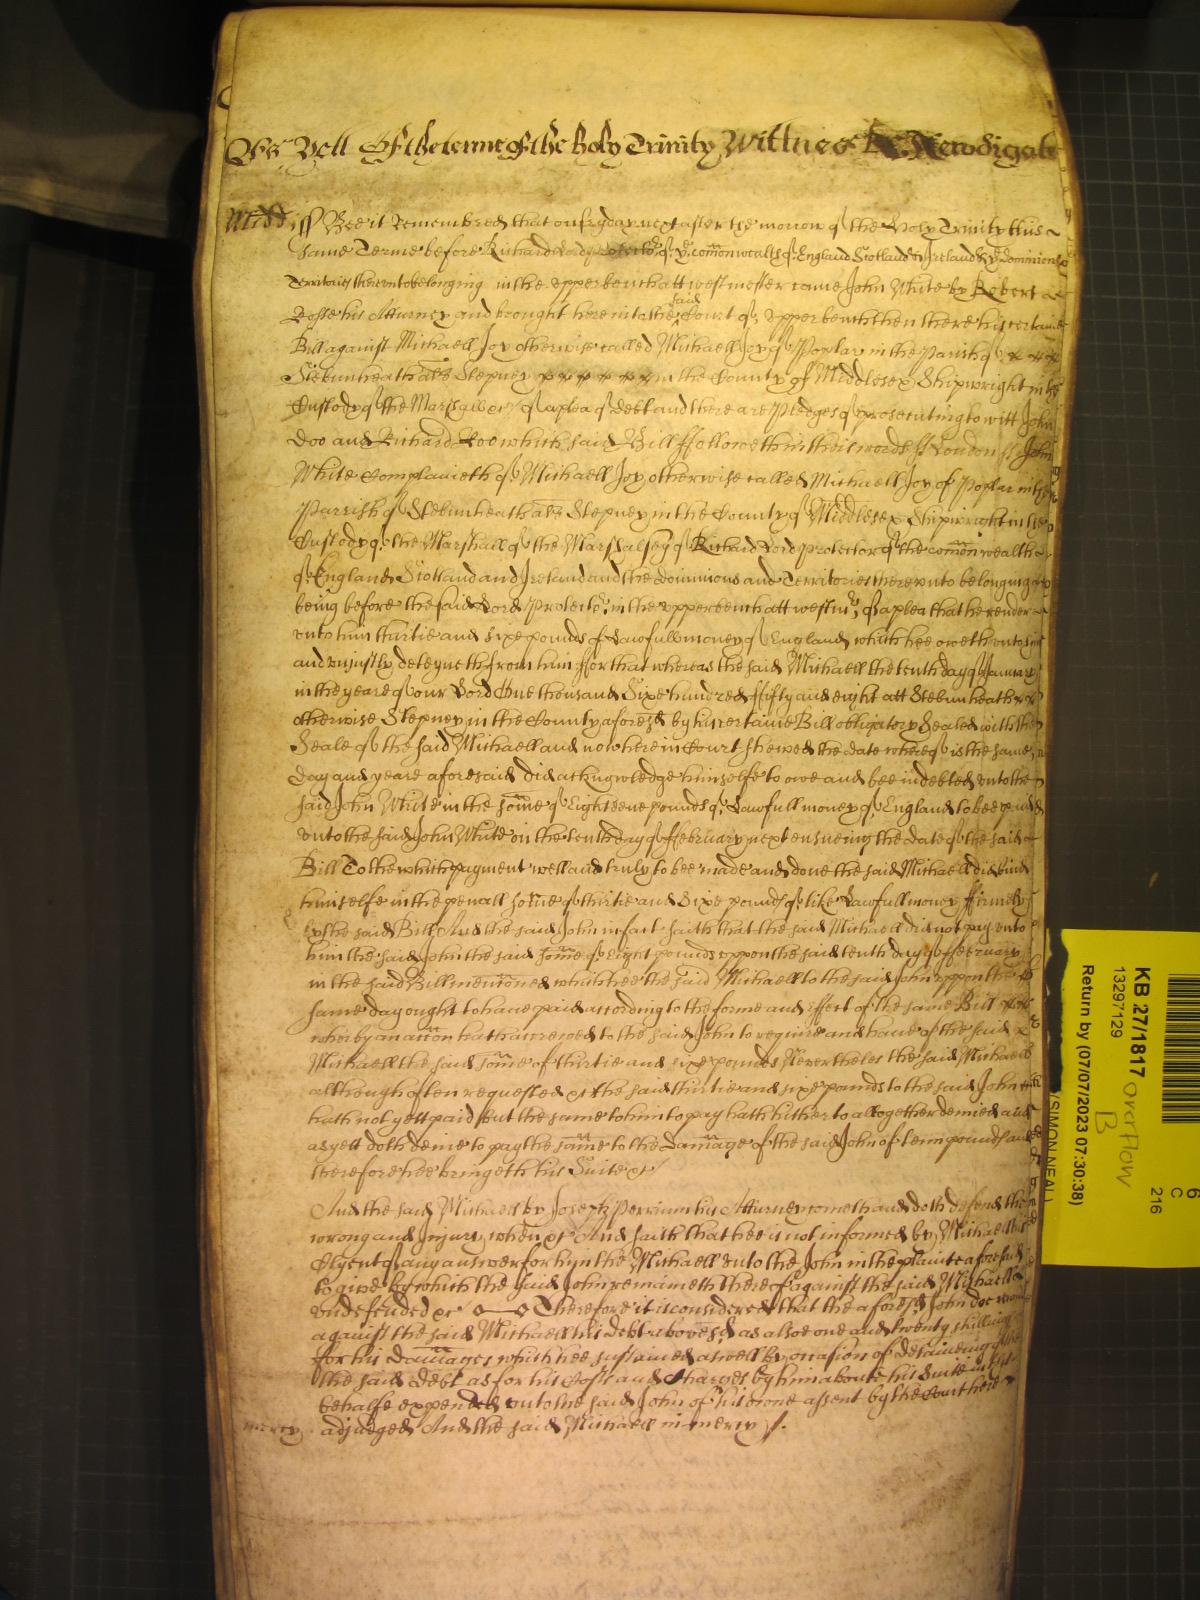 Yet Roll Of the terme of the holy Trinity Wittnes R: Newdigate
Midd ss Bee it Remembred that on fryday next after the morow of the Holy Trinity this
same Terme before Richard Lord Protector of ye comonwealth of England Scotland & Ireland & ye Dominions &
Territories thereunto belonging in the upper bench att westmester came John White by Robert
Rosse his Atturney and brought here into the said Court of upper bench then there his certaine
Bill against Michaell Joy otherwise called Michaell Joy of Poplar in the Parish of
Stebunheath als Stepney in the County of Middlesex Shipwright in the
Custody of the Marshall &c of a plea of debt and there are Pledges of prosecuting to witt John
Doo and Richard Roo which said Bill ffolloweth in theis words ss London ss John
White Complaineth of Michaell Joy otherwise called Michaell Joy of Poplar in the
Parrish of Stebunheath als Stepney in the County of Middlesex Shipwright in the
Custody of the Marshall of the Marshalsey of Richard Lord Protector of the comon wealth
of England Scotland and Ireland and the dominions and Territories thereunto belonging
being before the said Lord Protector in the upper bench att westmr of a plea that he render
unto him thirtie and sixe pounds of Lawfull money of England which hee oweth unto him
and unjustly deteyneth from him ffor that whereas the said Michaell the tenth day of January
in the yeare of our Lord One thousand Sixe hundred ffifty and eight att Stebunheath
otherwise Stepney in the County aforesd by his certaine Bill obligatory Sealed with the
Seale of the said Michaell and now here in Court shewed the date whereof is the same
day and yeare aforesaid did acknowledge himselfe to owe and bee indebted unto the
said John White in the some of Eighteene pounds of Lawfull money of England to bee paid
unto the said John White on the tenth day of ffebruary next ensueing the date of the said
Bill To the which payment well and truly to bee made and done the said Michaell did bind
himselfe in the penall some of thirtie and Sixe pounds of like Lawfull money ffirmely
by the said Bill And the said John in fact saith that the said Michaell did not pay unto
him the said John the said some of Eight pounds uppon the said tenth day of ffebruary
in the said Bill mencioned which hee the said Michaell to the said John uppon the
same day ought to have paid according to the forme and effect of the same Bill
wherby an accon hath accrewed to the said John to require and have of the said
Michaell the said some of thirtie and sixe pounds Nevertheles the said Michaell
although often requested &c the said thirtie and sixe pounds to the said John
hath not yett paid but the same to him to pay hath hitherto altogether denied and
as yett doth denie to pay the same to the damage of the said John of tenn pounds and
therefore hee bringeth his Suite &c
And the said Michaell by Joseph Perrium his Atturney cometh and doth defend the
wrong and Injury when &c And saith that hee is not informed by Michaell his
Clyent of any answer for hym the Michaell unto the John in the plainte aforesaid
to give by which the said John remaineth thereof against the said Michaell
undefended &c Therefore it is considered that the aforesd John doe recover
against the said Michaell his debt abovesd as alsoe one and twenty shillings
for his damages which hee sustained aswell by occasion of detaineing of the
the said debt as for his Costs and Charges by him aboute his Suite in that
behalfe expended unto the said John of his owne assent by the Court here
mercy adjudged And the said Michaell in mercy &.
KB 27/1817
13297129
Return by (07/07/2023 07:30:38)
(SIMON NEAL)
overflow
B
6
C
216